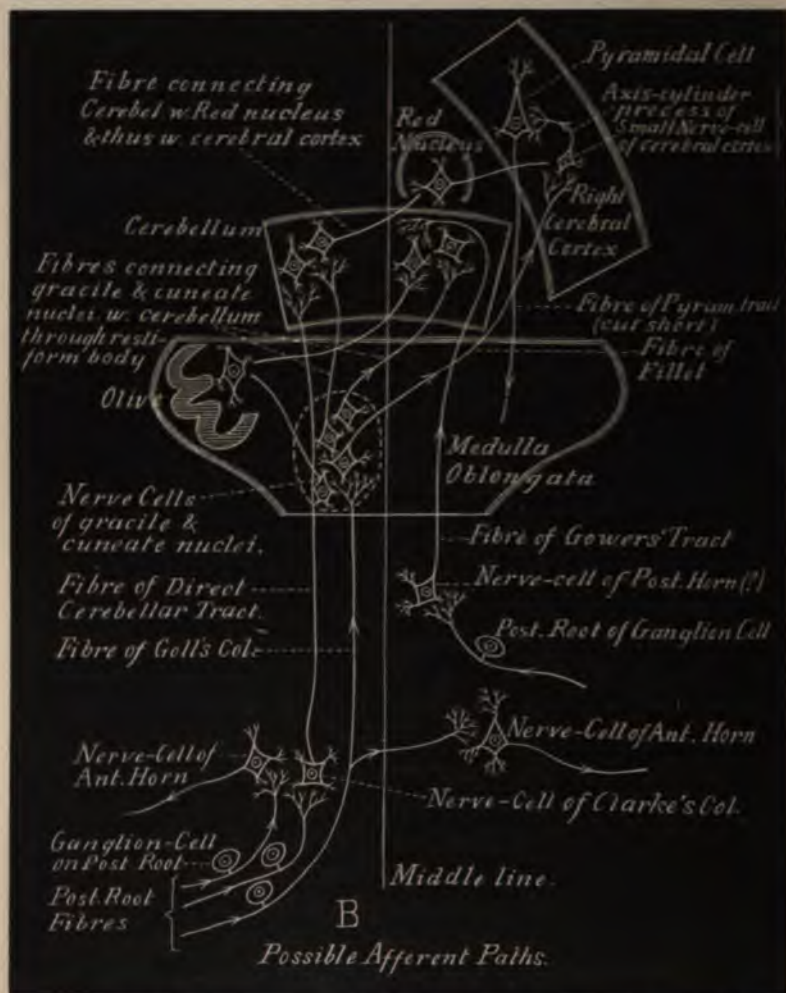 Pyramidal Cell
Fibre connecting
Cerebel w. Red nucleus
& thus w. cerebral cortex
Axis-cylinder
process of
Small Nerve-cell
of cerebral cortex
Red
Nucleus
Right
Cerebral
Cortex
Cerebellum
Fibres connecting
gracile & cuneate
nuclei w. cerebellum
through resti-
form body
Fibre of Pyram. tract
(cut short)
Fibre of
Fillet
Olive
Medulla
Oblongata
Nerve Cells
of gracile &
cuneate nuclei.
Fibre of Gowers' Tract
Fibre of Direct
Cerebellar Tract.
Nerve-cell of Post. Horn (?)
Post. Root of Ganglion Cell
Fibre of Goll's Col.
Nerve-Cell of
Ant. Horn
Nerve-Cell of Ant. Horn
Nerve-Cell of Clarke's Col.
Ganglion-Cell
on Post Root
Post. Root
Fibres
Middle line.
B
Possible Afferent Paths.